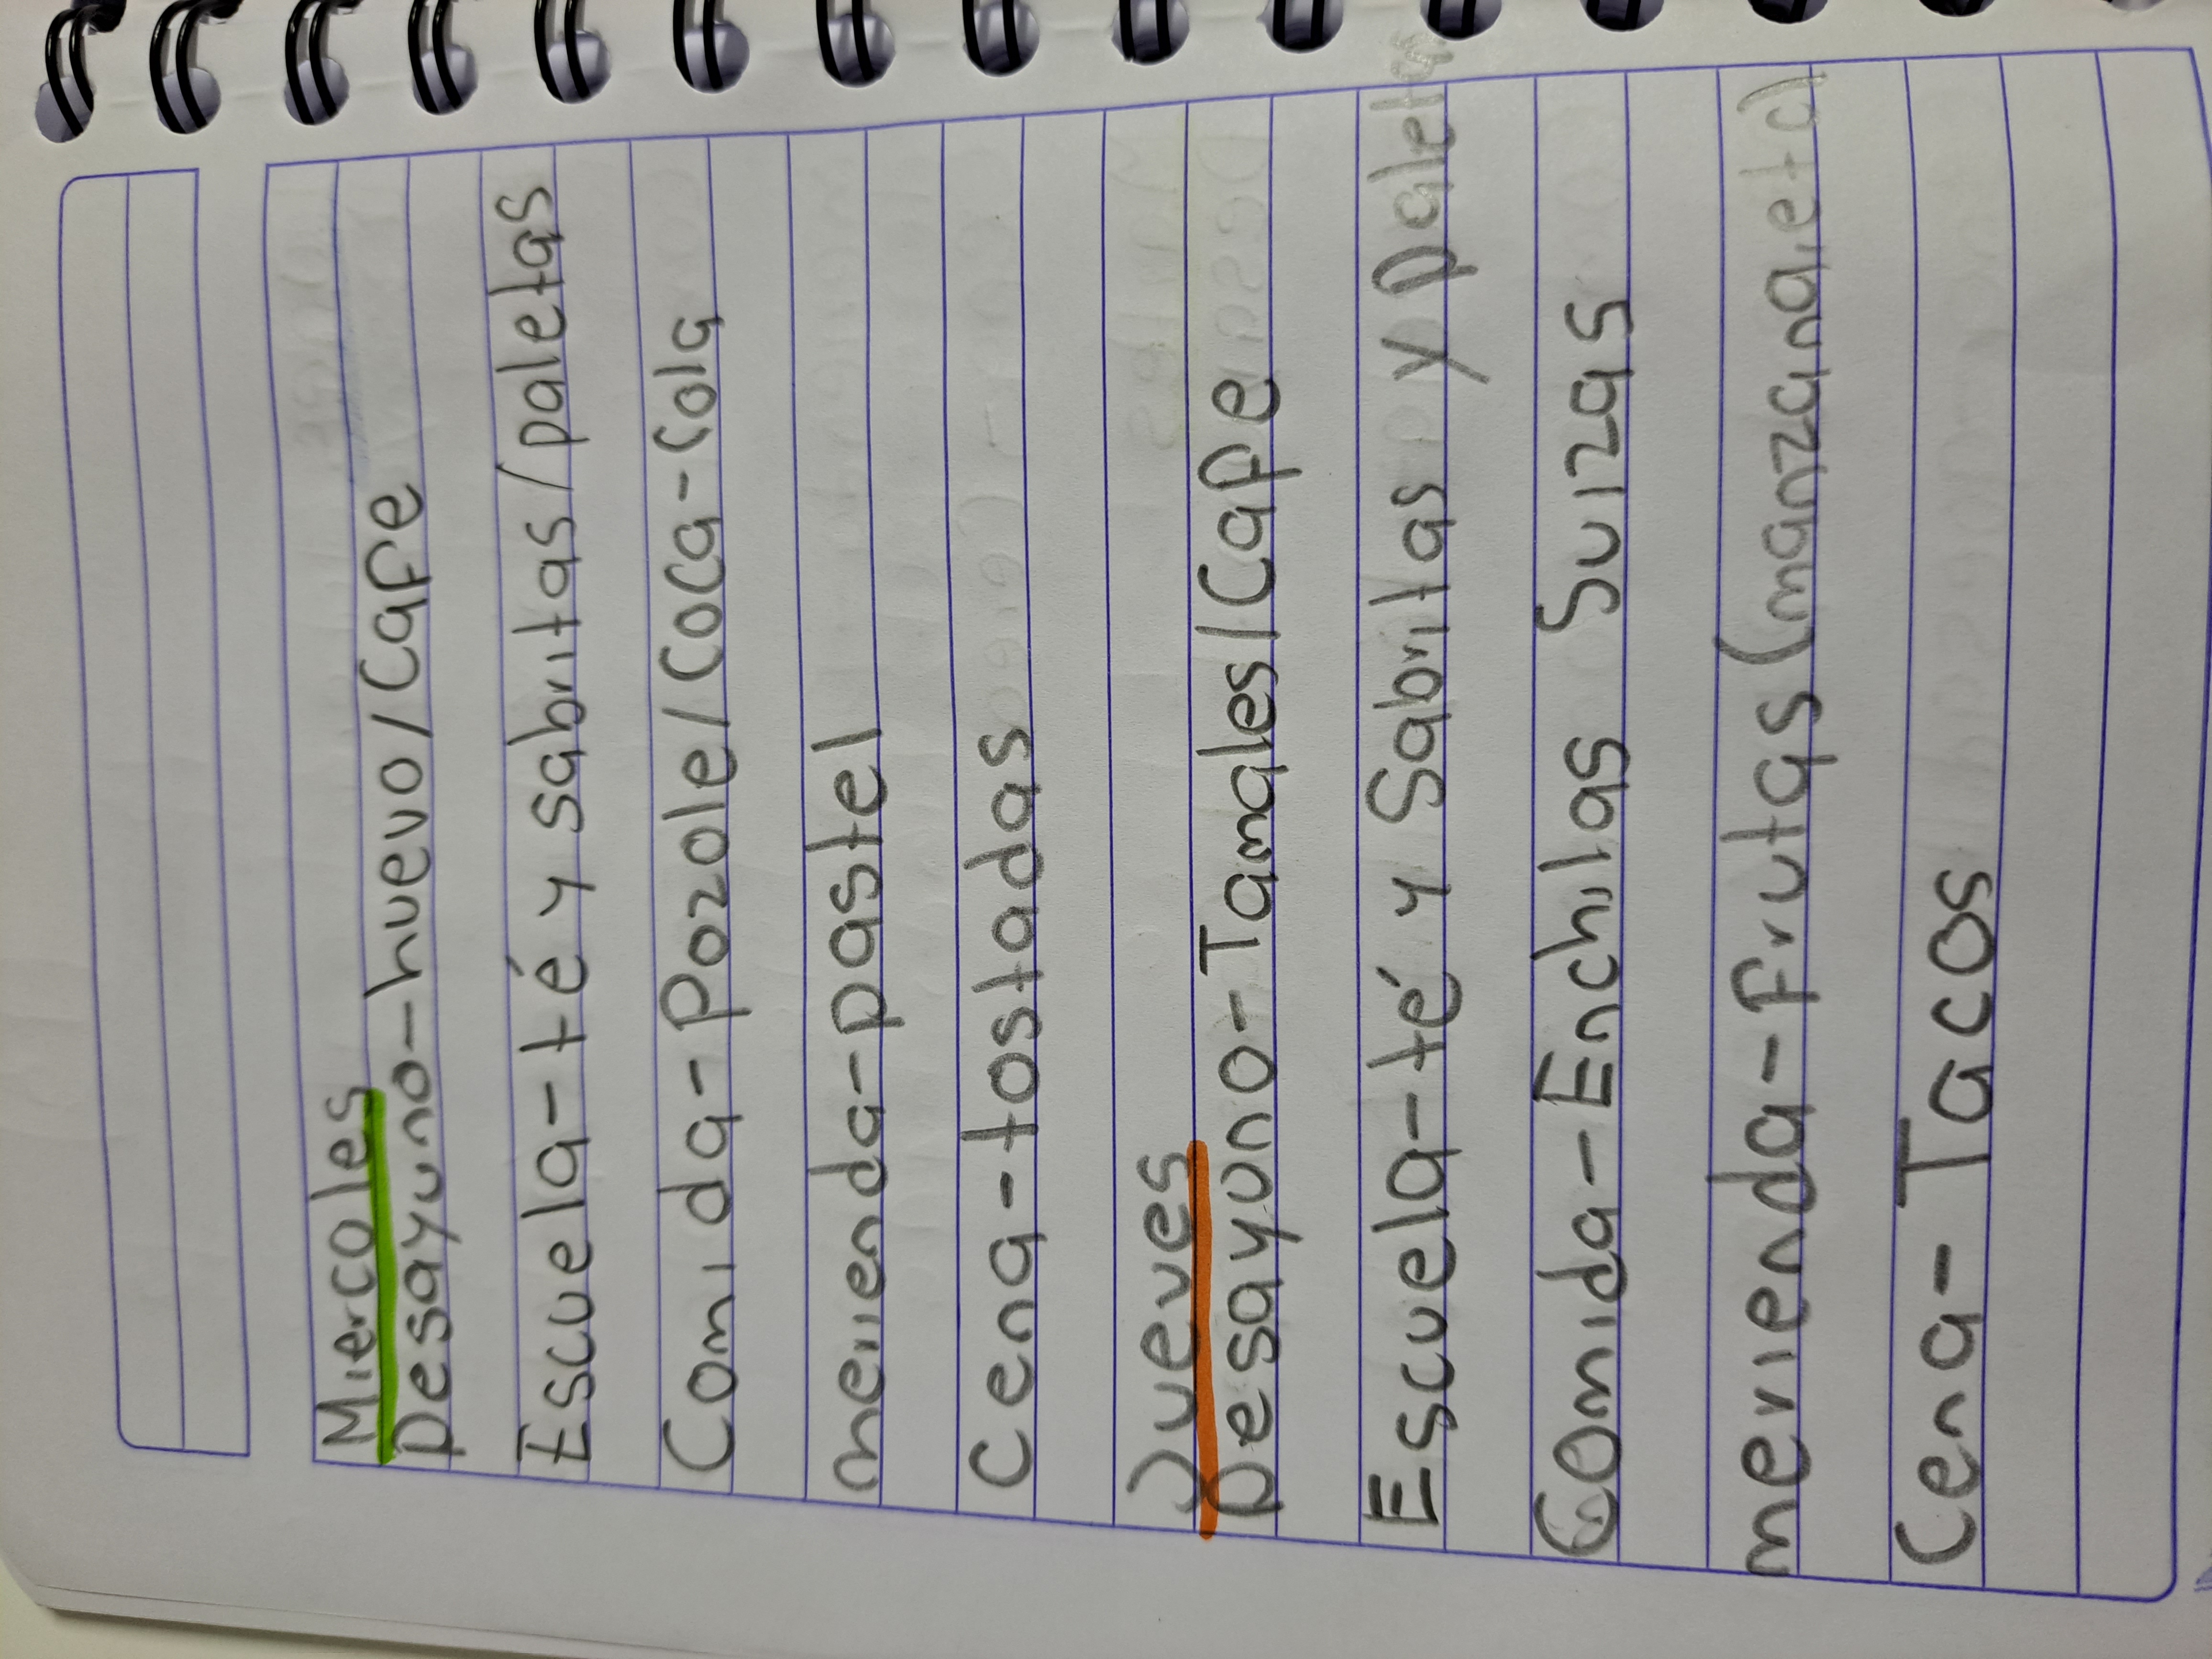 Miercoles
Desayuno-huevo/Cafe
Escuela-té y sabritas/paletas
Comida-Pozole/Coca-Cola
merienda-pastel
Cena-tostadas
Jueves
Desayuno-Tamales/Cafe
Escuela-té y Sabritas y paletas
Comida-Enchilas Suizas
merienda-frutas(manzana,etc)
Cena-Tacos